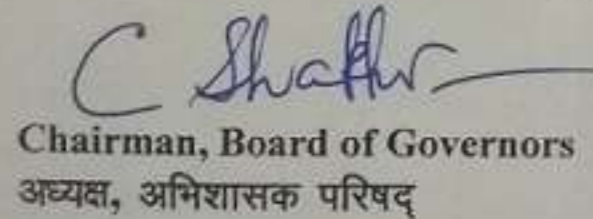 Chairman, Board of Governors
अध्यक्ष, अभिशासक परिषद्